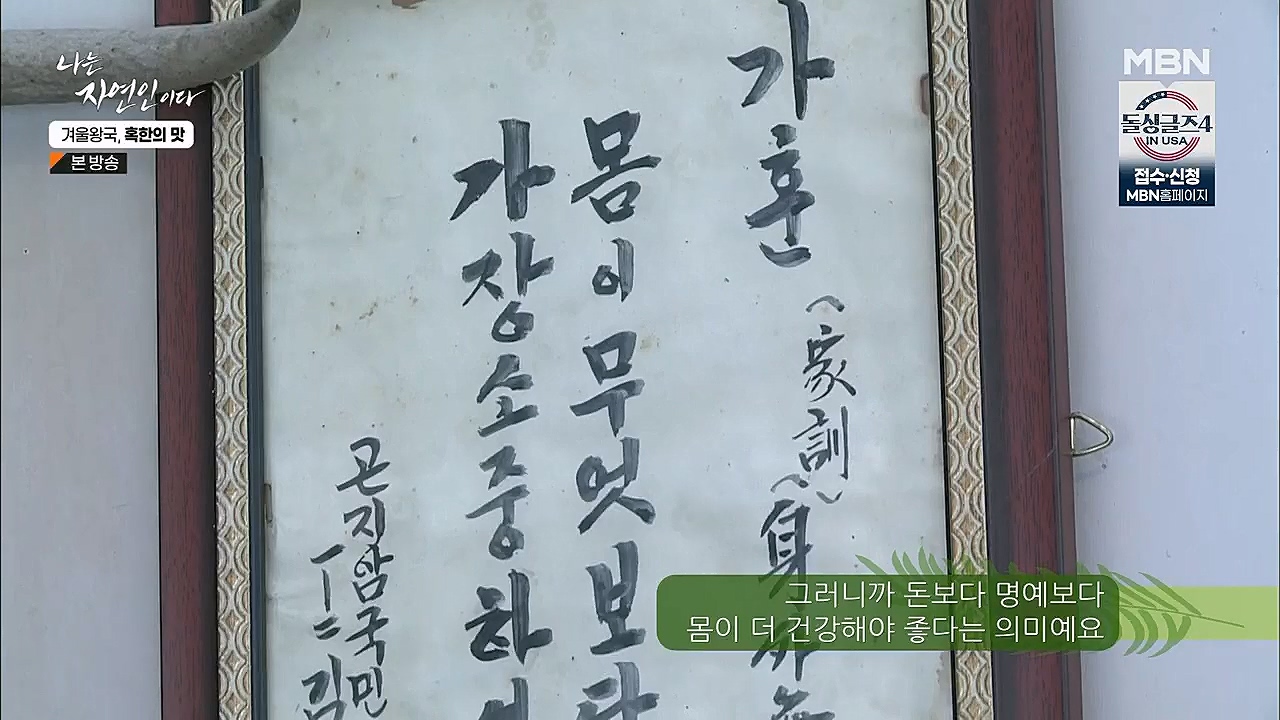 나는
자연인이다
겨울왕국, 혹한의 맛
본 방송
MBN
돌싱글즈4
IN USA
접수·신청
MBN홈페이지
가훈 (家訓) (身
몸이무엇보다
가장소중하
곤지암국민
김
그러니까 돈보다 명예보다
몸이 더 건강해야 좋다는 의미예요